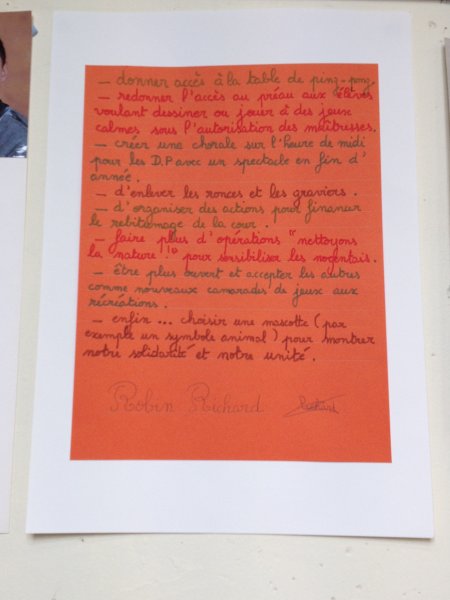 — donner accès à la table de ping-pong.
— redonner l'accès au préau aux élèves
voulant dessiner ou jouer à des jeux
calmes sous l'autorisation des maîtresses.
— créer una chorale sur l'heure de midi
pour les D.P avec un spectacle en fin d'
année.
— d'enlever les ronces et les graviers.
— d'organiser des actions pour financer
le rebitumage de la cour.
— faire plus d'opérations "nettoyons
la nature!" pour sensibiliser les nogentais.
— être plus ouvert et accepter les autres
comme nouveaux camarades de jeux aux
récréations.
— enfin ... choisir une mascotte (par
exemple un symbole animal) pour montrer
notre solidarité et notre unité.
Robin Richard Richard